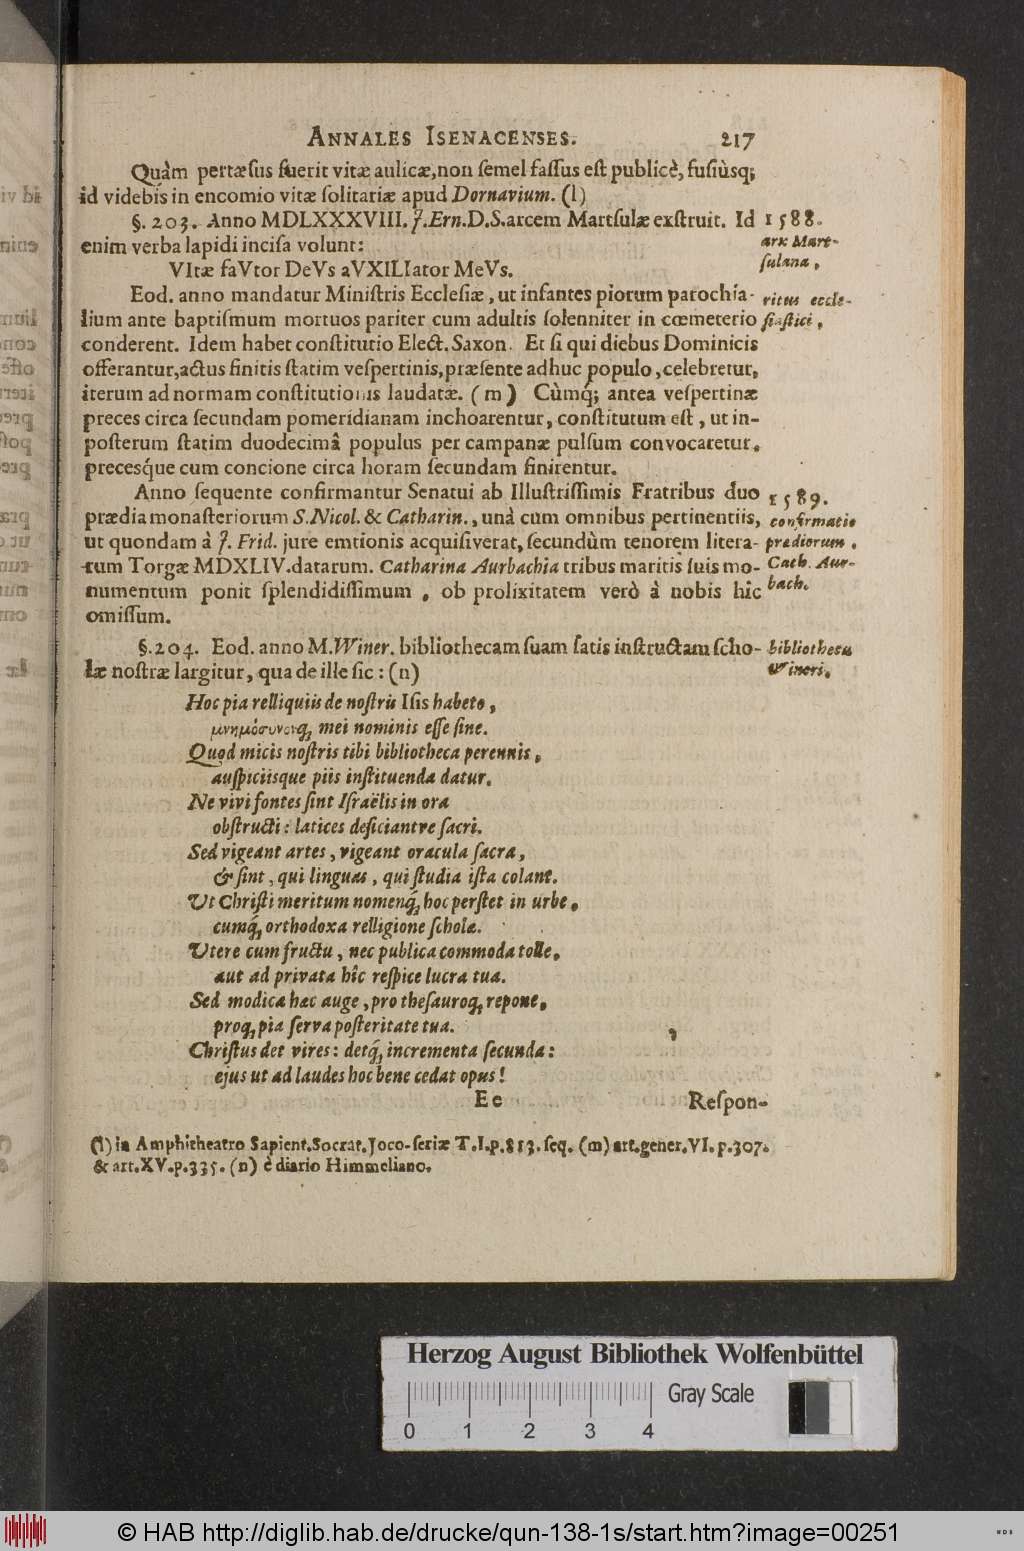 ANNALES ISENACENSES. 217
Quàm pertæsus fuerit vitæ aulicæ,non semel fassus est publicè, fusiùsq;
id videbis in encomio vitæ solitariæ apud Dornavium. (l)
§. 203. Anno MDLXXXVIII. J.Ern.D.S.arcem Martsulæ exstruit. Id
1588.
enim verba lapidi incisa volunt:
arx Mart-
sulana,
VItæ faVtor DeVs aVXILIator MeVs.
Eod. anno mandatur Ministris Ecclesiæ, ut infantes piorum parochia-
ritus eccle-
lium ante baptismum mortuos pariter cum adultis solenniter in cœmeterio
siastici,
conderent. Idem habet constitutio Elect. Saxon. Et si qui diebus Dominicis
offerantur,actus finitis statim vespertinis,præsente adhuc populo,celebretur,
iterum ad normam constitutionis laudatæ. (m) Cùmq; antea vespertinæ
preces circa secundam pomeridianam inchoarentur, constitutum est, ut in-
posterum statim duodecimâ populus per campanæ pulsum convocaretur,
precesq́ue cum concione circa horam secundam finirentur.
Anno sequente confirmantur Senatui ab Illustrissimis Fratribus duo
1589.
prædia monasteriorum S.Nicol. & Catharin., unà cum omnibus pertinentiis,
confirmatio
ut quondam à J. Frid. jure emtionis acquisiverat, secundùm tenorem litera-
prædiorum.
rum Torgæ MDXLIV.datarum. Catharina Aurbachia tribus maritis suis mo-
Cath. Aur-
numentum ponit splendidissimum, ob prolixitatem verò à nobis hîc
bach.
omissum.
§.204. Eod. anno M.Winer. bibliothecam suam satis instructam scho-
bibliotheca
læ nostræ largitur, qua de ille sic: (n)
Wineri.
Hoc pia relliquiis de nostris Isis habeto,
μνημόσυνονq; mei nominis esse sine.
Quod micis nostris tibi bibliotheca perennis,
auspiciisque piis instituenda datur.
Ne vivi fontes sint Israëlis in ora
obstructi: latices deficiantve sacri.
Sed vigeant artes, vigeant oracula sacra,
& sint, qui linguas, qui studia ista colant.
Ut Christi meritum nomenq́; hoc perstet in urbe,
cumq́; orthodoxa relligione schola.
Utere cum fructu, nec publica commoda tolle,
aut ad privata hîc respice lucra tua.
Sed modica hac auge, pro thesauroq; repone,
proq; pia serva posteritate tua.
Christus det vires: detq́; incrementa secunda:
ejus ut ad laudes hoc bene cedat opus!
Ee Respon-
(l) in Amphitheatro Sapient.Socrat.Joco-seriæ T.I.p.813.seq. (m) art.gener.VI.p.307.
& art.XV.p.335. (n) è diario Himmeliano.
Herzog August Bibliothek Wolfenbüttel
Gray Scale
0 1 2 3 4
© HAB http://diglib.hab.de/drucke/qun-138-1s/start.htm?image=00251